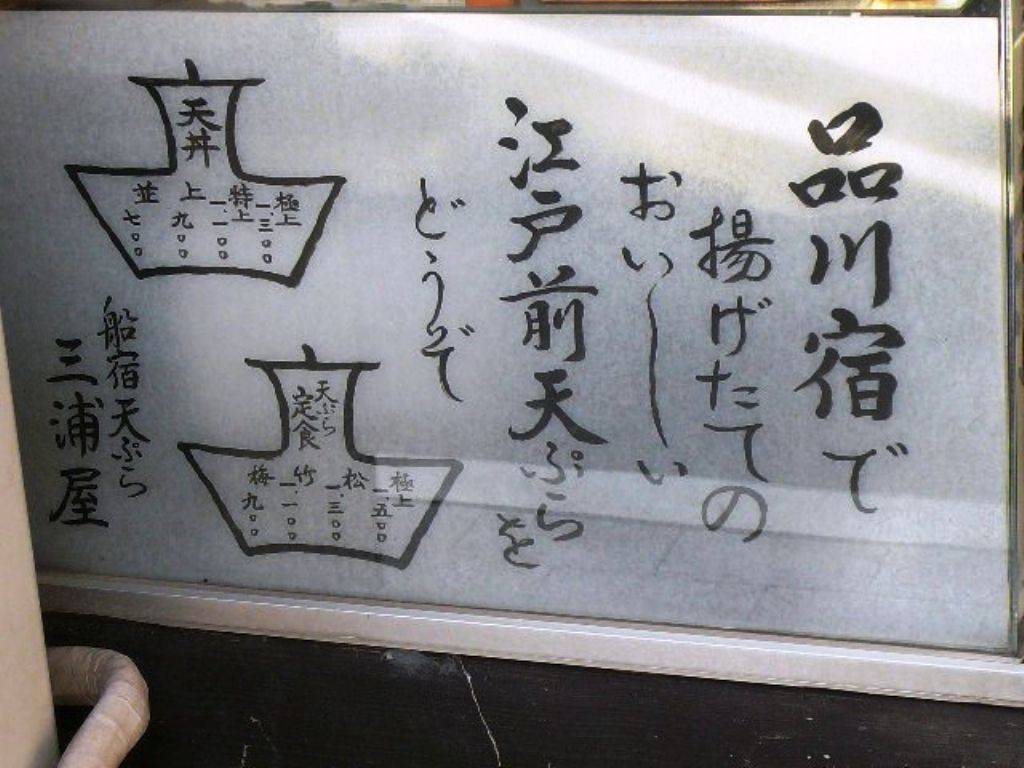 品川宿で
揚げたての
おいしい
江戸前天ぷらを
どうぞ
天丼
極上 一、三〇〇
特上 一、一〇〇
上 九〇〇
並 七〇〇
天ぷら
定食
極上 一、五〇〇
松 一、三〇〇
竹 一、一〇〇
梅 九〇〇
船宿天ぷら
三浦屋